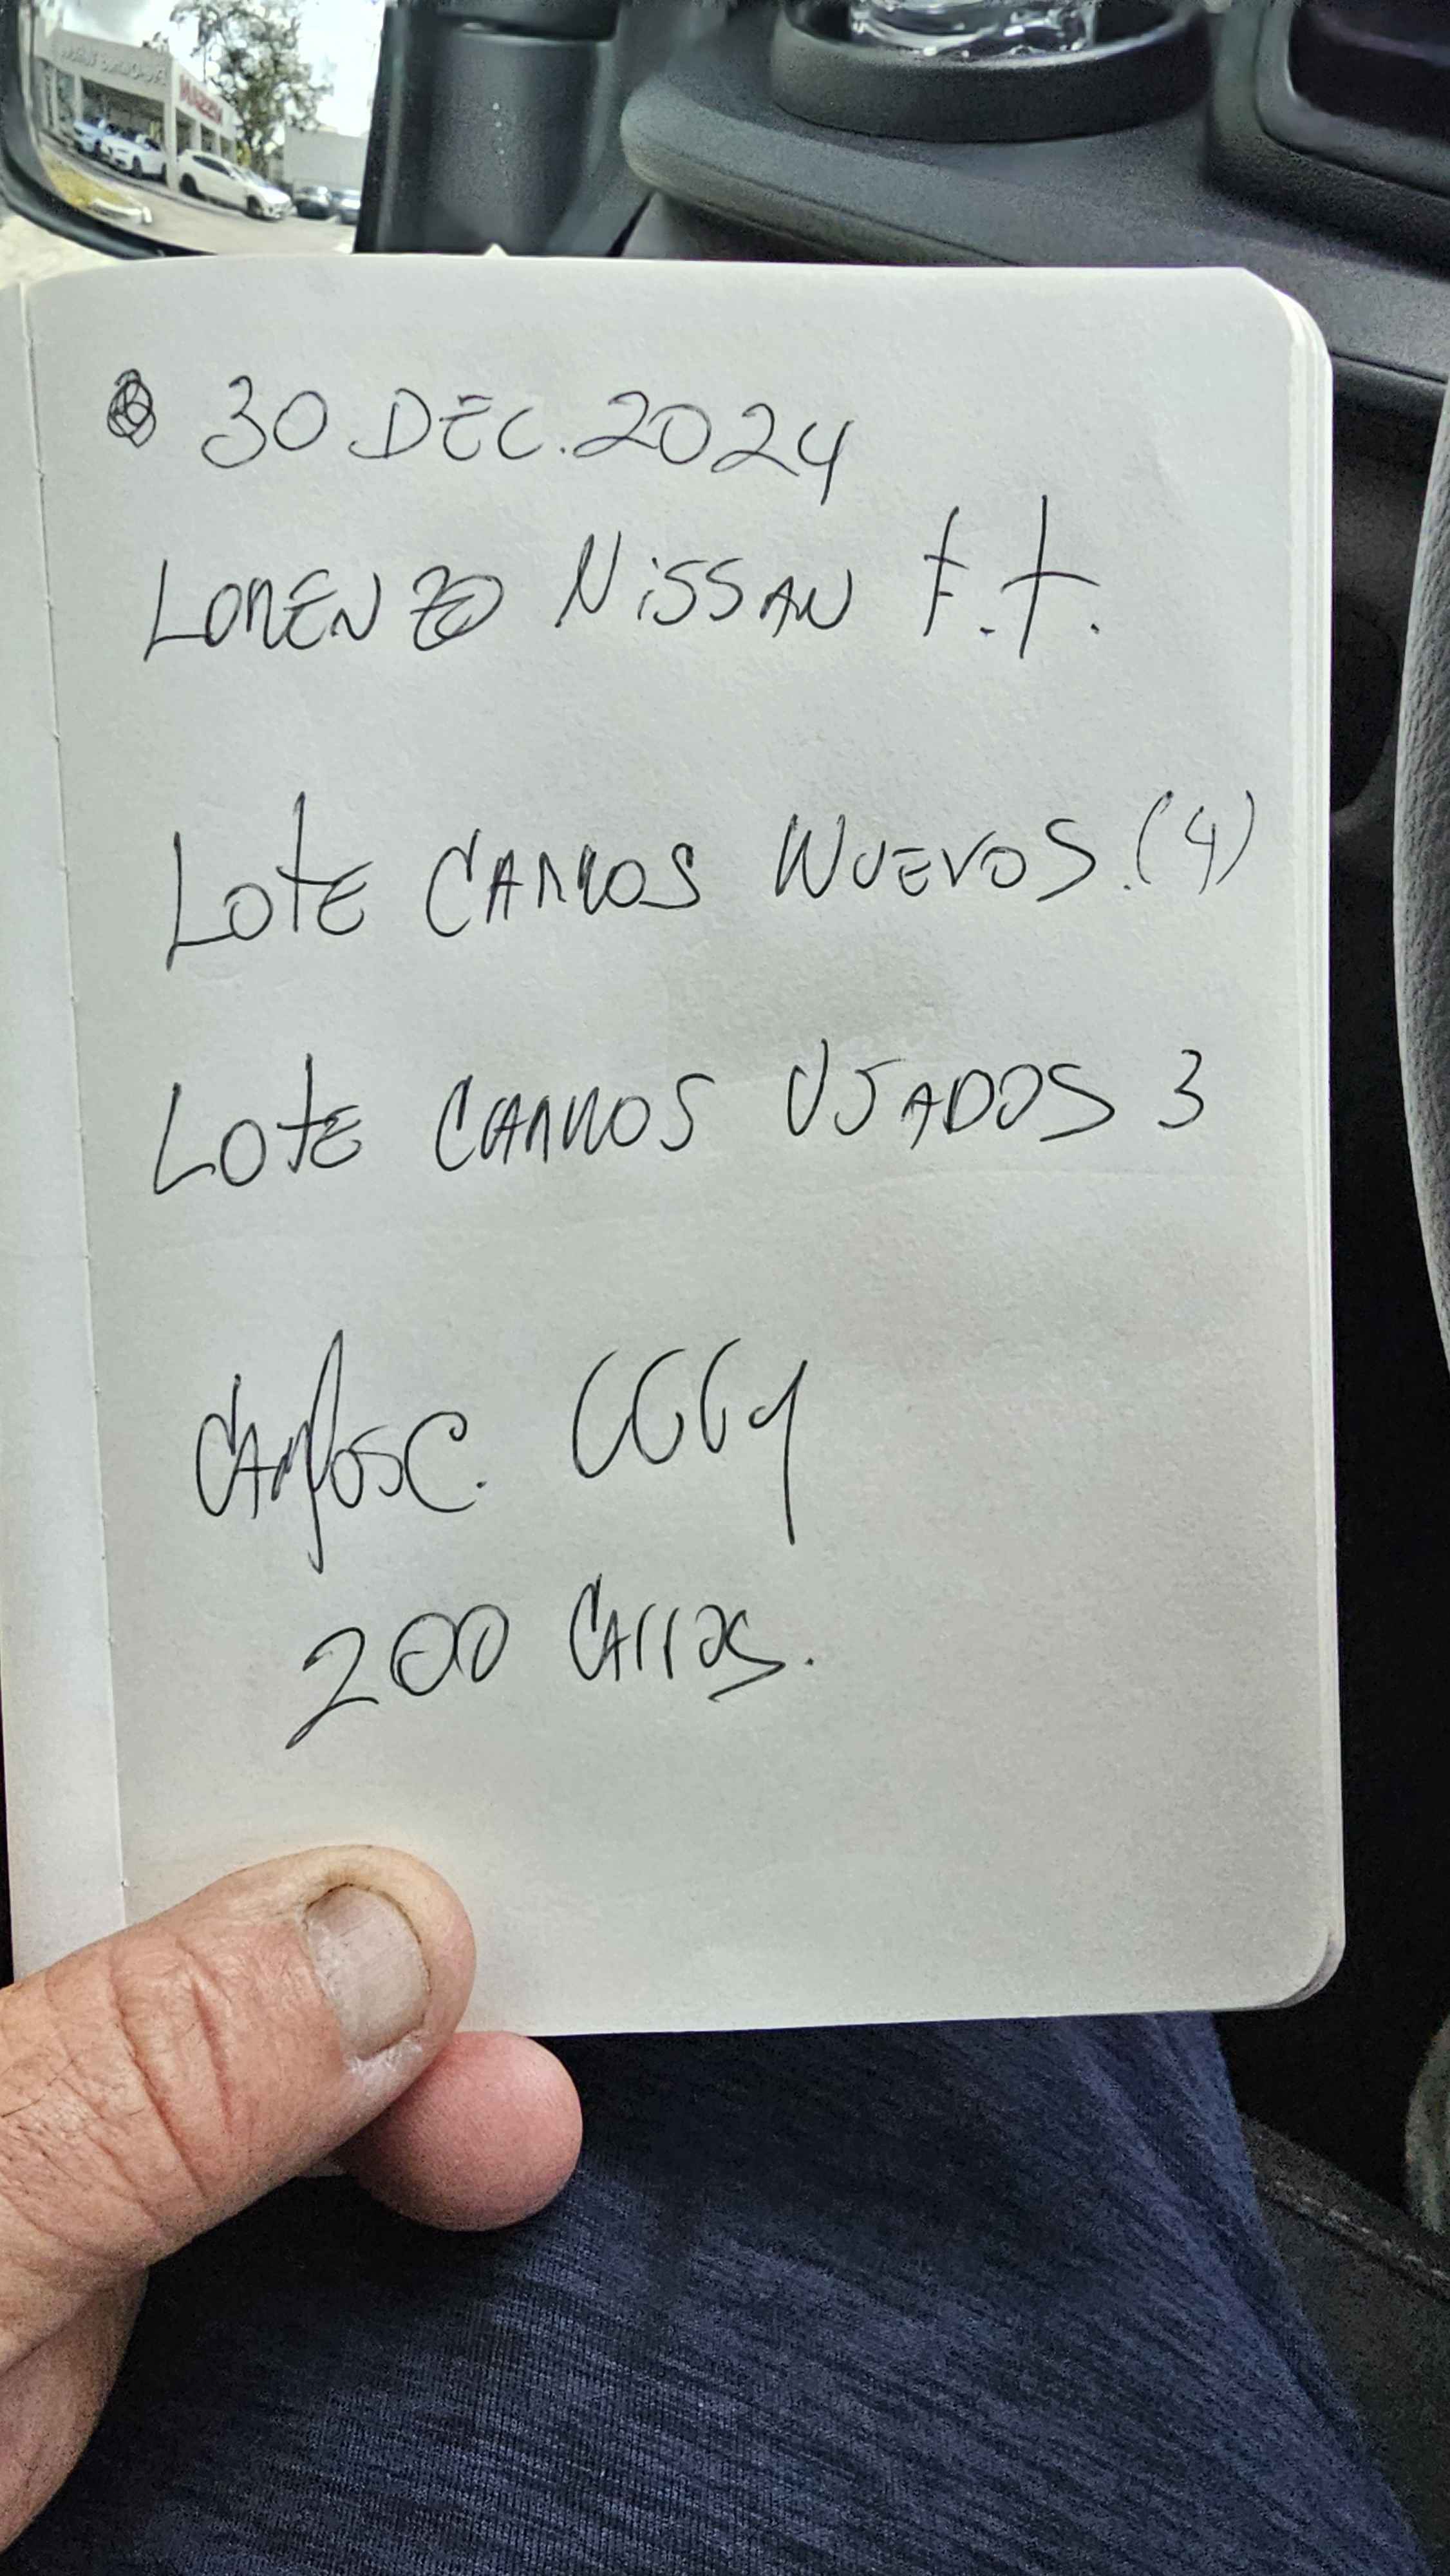 NISSAN
30 DEC. 2024
LORENZO NISSAN F.T.
LOTE CARROS NUEVOS. (4)
LOTE CARROS USADOS 3
CARLOS C.
200 CARROS.